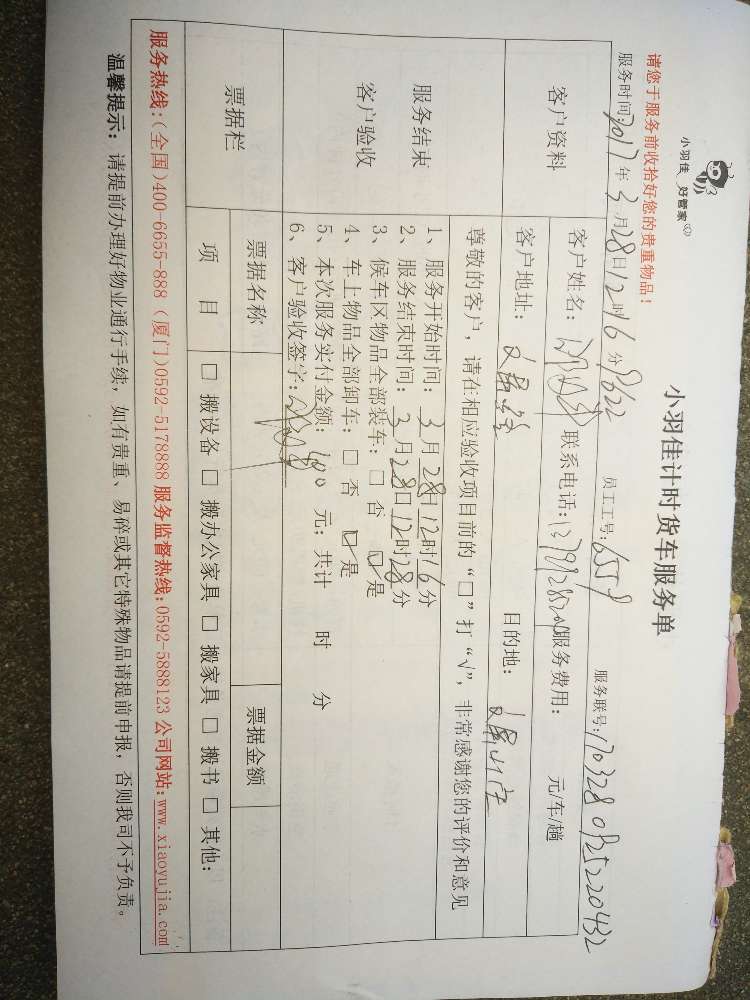 小羽佳 好管家
小羽佳计时货车服务单
请您于服务前收拾好您的贵重物品!
服务时间:2017年3月28日12时16分 员工工号:6559 服务联号:
客户资料 客户姓名: 联系电话: 服务费用: 元/车/趟
客户地址: 目的地:
尊敬的客户，请在相应验收项目前的“□”打“√”，非常感谢您的评价和意见
服务结束
客户验收
1、服务开始时间: 3月28日12时16分
2、服务结束时间: 3月28日12时28分
3、候车区物品全部装车: □ 否 ☑是
4、车上物品全部卸车: □ 否 ☑是
5、本次服务实付金额: 400 元; 共计 时 分
6、客户验收签字:
票据栏 票据名称 票据金额
项 目 □ 搬设备 □ 搬办公家具 □ 搬家具 □ 搬书 □ 其他:
服务热线:(全国)400-6655-888 (厦门)0592-5178888 服务监督热线:0592-5888123 公司网站:www.xiaoyujia.com
温馨提示: 请提前办理好物业通行手续，如有贵重、易碎或其它特殊物品请提前申报，否则我司不予负责。